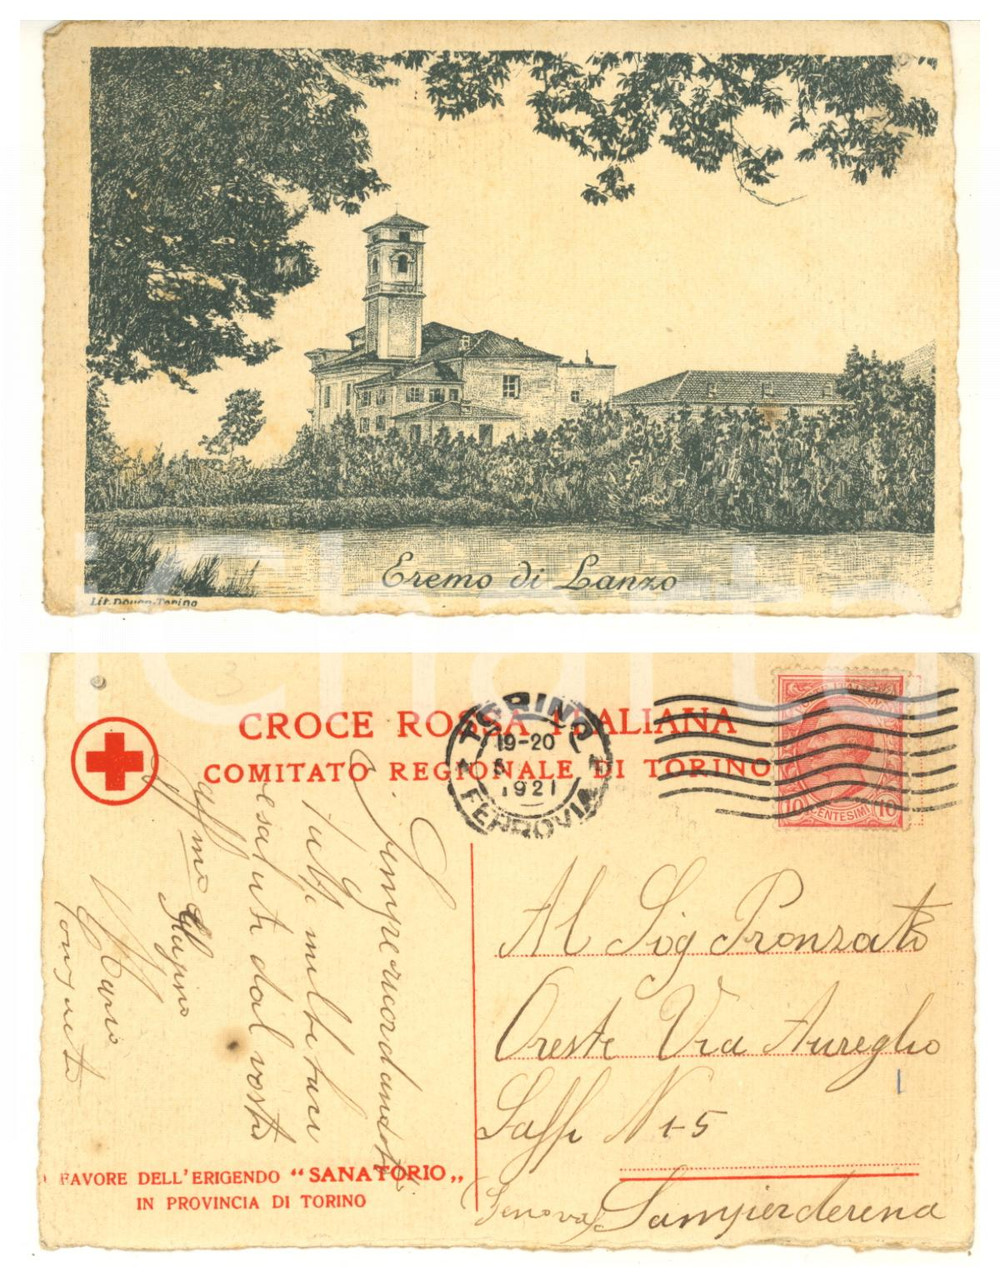 Eremo di Lanzo
Lit. Doyen. Torino
iCharta
3
CROCE ROSSA ITALIANA
COMITATO REGIONALE DI TORINO
TORINO
19-20
1921
FERROVIA
10 CENTESIMI 10
Sempre ricordandoti
e saluti dal vostro
affmo
Mario
Al Sig Pronzato
Oreste Via Aureglio
Saffi N 15
(Genova) Sampierderena
FAVORE DELL'ERIGENDO "SANATORIO„
IN PROVINCIA DI TORINO